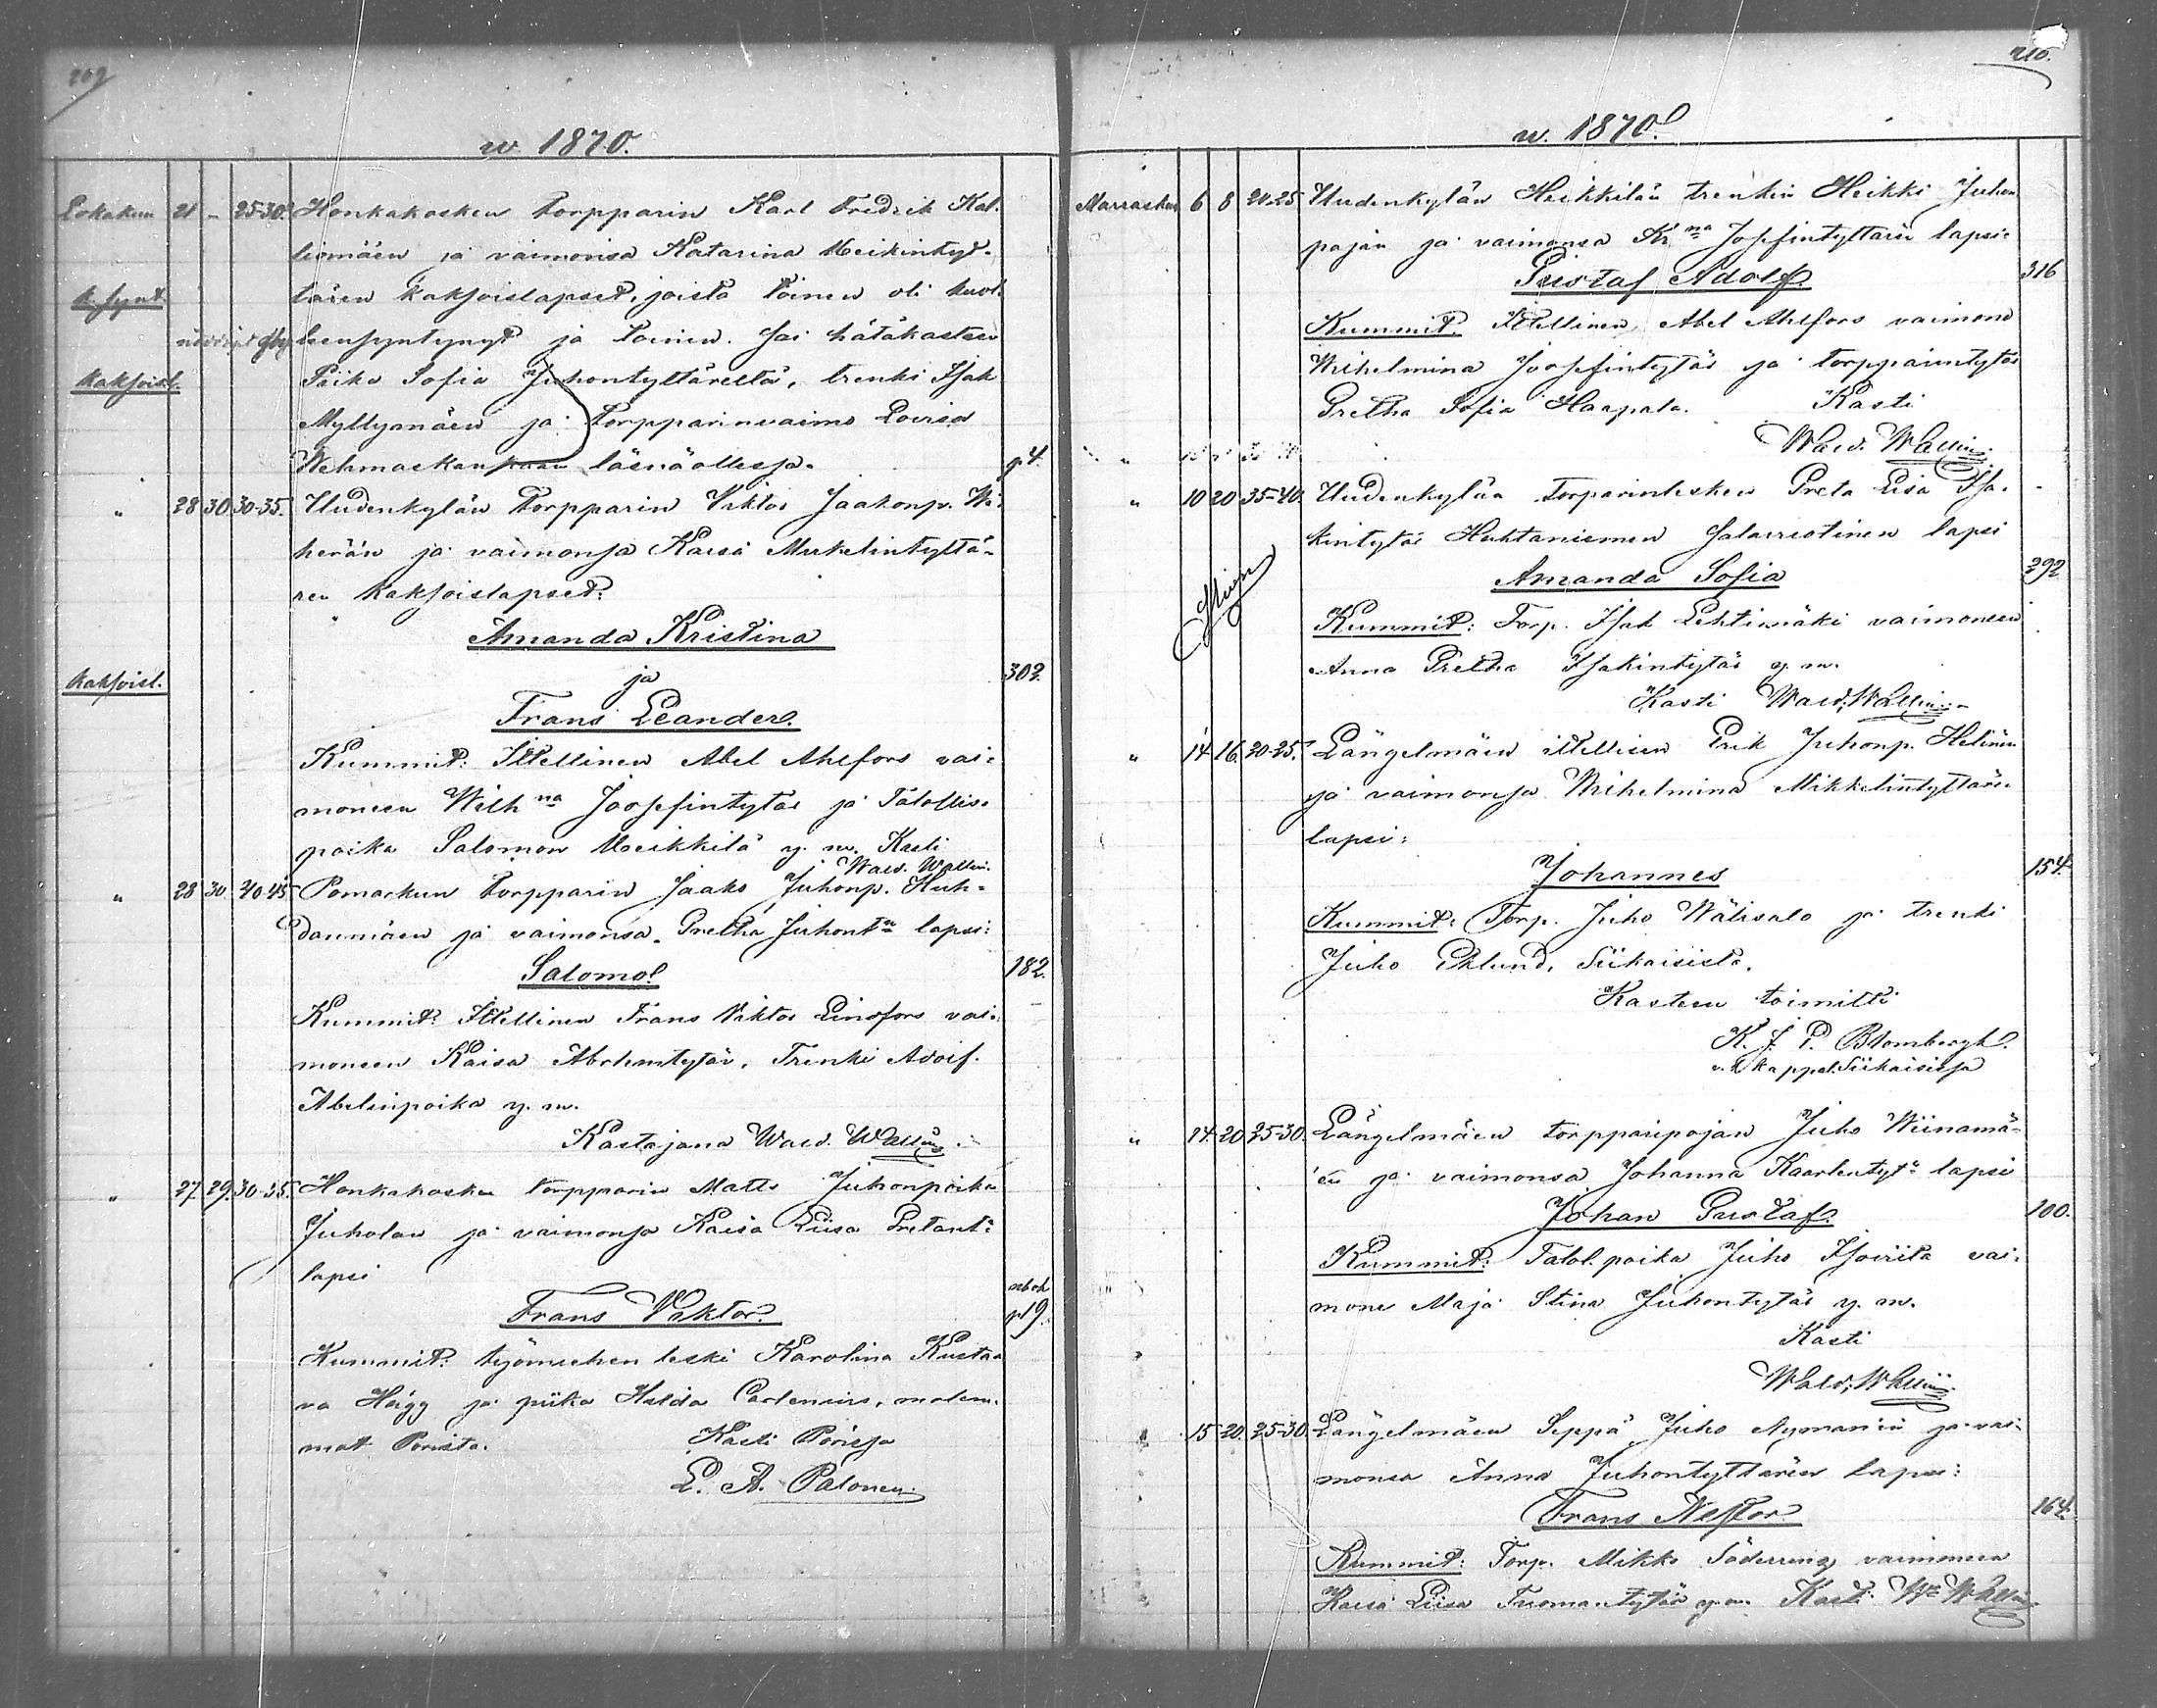 209
w 1870.
Lokakuu 21 – 25-30. Honkakosken torpparin Karl Fredrik Kal-
liomäen ja vaimonsa Katarina Heikintyt-
k. synt. tären kaksoislapset, joista toinen oli kuol-
leensyntynyt ja toinen sai hätäkasteen
kaksoisl. Piika Sofia Juhontyttäreltä, trenki Isak
Myllymäen ja torpparinvaimo Lovisa
Wehmaskankaan läsnäollessa. p 4.
" 28 30 30-35. Uudenkylän Torpparin Viktor Jaakonp. Wi-
herän ja vaimonsa Kaisa Mikkelintyttä-
ren kaksoislapset:
Amanda Kristina
kaksoisl. ja 302.
Frans Leander.
Kummit: Itsellinen Abel Ahlfors vai-
moneen Wilhna Joosefintytär ja Talollis-
poika Salomon Heikkilä y. m. Kasti
Wald. Wallin.
" 28 30. 40-45 Pomarkun torpparin Jaako Juhonp. Huh-
danmäen ja vaimonsa Gretha Juhontn lapsi:
Salomo. 182.
Kummit: Itsellinen Frans Viktor Lindfors vai-
moneen Kaisa Abrahmtytär, Trenki Adolf
Abelinpoika y. m.
Kastajana Wald. Wallin.
" 27. 29. 30-35. Honkakosken torpparin Matts Juhonpoika
Juholan ja vaimonsa Kaisa Liisa
lapsi
Frans Viktor. p 19.
Kummit: työmiehen leski Karolina Kusta-
va Hägg ja piika Hulda Carlenius, molem-
mat Porista. Kasti Porissa
L. A. Palonen.
210.
w. 1870.
Marraskuu 6 8 20-25 Uudenkylän Heikkilän trenkin Heikki Juhon
pojan ja vaimonsa Krna Josefintyttären lapsi:
Gustaf Adolf. 316
Kummit: Itsellinen Abel Ahlfors vaimone
Wilhelmina Joosefintytär ja torpparintytär
Gretha Sofia Haapala. Kasti
Wald. Wallin.
" 10 20 35-40. Uudenkylän torparinlesken Greta Lisa Isa-
kintytär Huhtaniemen Salavuotinen lapsi
Amanda Sofia 292
Kummit: Torp. Isak Lehtimäki vaimoneen
Anna Gretha Isakintytär y. m.
Kasti Wald. Wallin.
" 14 16. 20-25. Längelmäen itsellisen Erik Juhonp. Helinin
ja vaimonsa Wilhelmina Mikkelintyttären
lapsi:
Johannes 154.
Kummit: Torp. Juho Wälisalo ja trenki
Juho Eklund, Siikaisista.
Kasteen toimitti
K. J. P. Blombergh.
v. kappel. Siikaisissa
" 14 20 25-30. Längelmäen torpparipojan Juho Wiinamä-
en ja vaimonsa Johanna Kaarlentytn lapsi
Johan Gustaf. 100.
Kummit: Talol. poika Juho Isoviita vai-
mone Maja Stina Juhontytär y. m.
Kasti
Wald. Wallin.
" 15 20. 25-30. Längelmäen Seppä Juho Nymanin ja vai-
monsa Anna Juhontyttären lapsi:
Frans Nestor 164.
Kummit: Torp. Mikko Söderring vaimoneen
Kaisa Liisa Tuomantytär y. m. Kasti. Wd Wallin